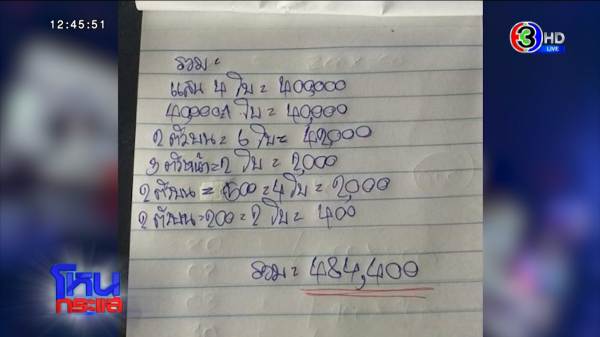 12:45:51
3 HD
LIVE
รวม =
แสน 4 ใบ = 400,000
40,000 1 ใบ = 40,000
2 ตัวบน = 6 ใบ = 42000
3 ตัวหน้า = 2 ใบ = 2,000
2 ตัวบน = 500 = 4 ใบ = 2,000
2 ตัวบน = 200 = 2 ใบ = 400
รวม = 484,400
โหน
กระแส